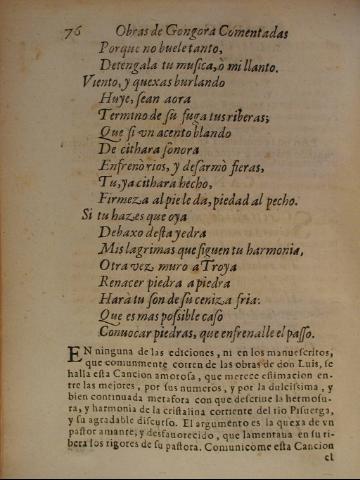 76 Obras de Gongora Comentadas
Porque no buele tanto,
Detengala tu musica, ò mi llanto.
Viento, y quexas burlando
Huye, sean aora
Termino de su fuga tus riberas;
Que si vn acento blando
De cithara sonora
Enfrenò rios, y desarmò fieras,
Tu, ya cithara hecho,
Firmeza al pie le da, piedad al pecho.
Si tu hazes que oya
Debaxo desta yedra
Mis lagrimas que siguen tu harmonia,
Otra vez muro a Troya
Renacer piedra a piedra
Harà tu son de su ceniza fria:
Que es mas possible caso
Conuocar piedras, que enfrenalle el passo.
EN ninguna de las ediciones, ni en los manuescritos,
que comunmente corren de las obras de don Luis, se
halla esta Cancion amorosa, que merece estimacion en-
tre las mejores, por sus numeros, y por la dulcissima, y
bien continuada metafora con que descriue la hermosu-
ra, y harmonia de la cristalina corriente del rio Pisuerga,
y su agradable discurso. El argumento es la quexa de vn
pastor amante, y desfauorecido, que lamentaua en su ri-
bera los rigores de su pastora. Comunicòme esta Cancion
el